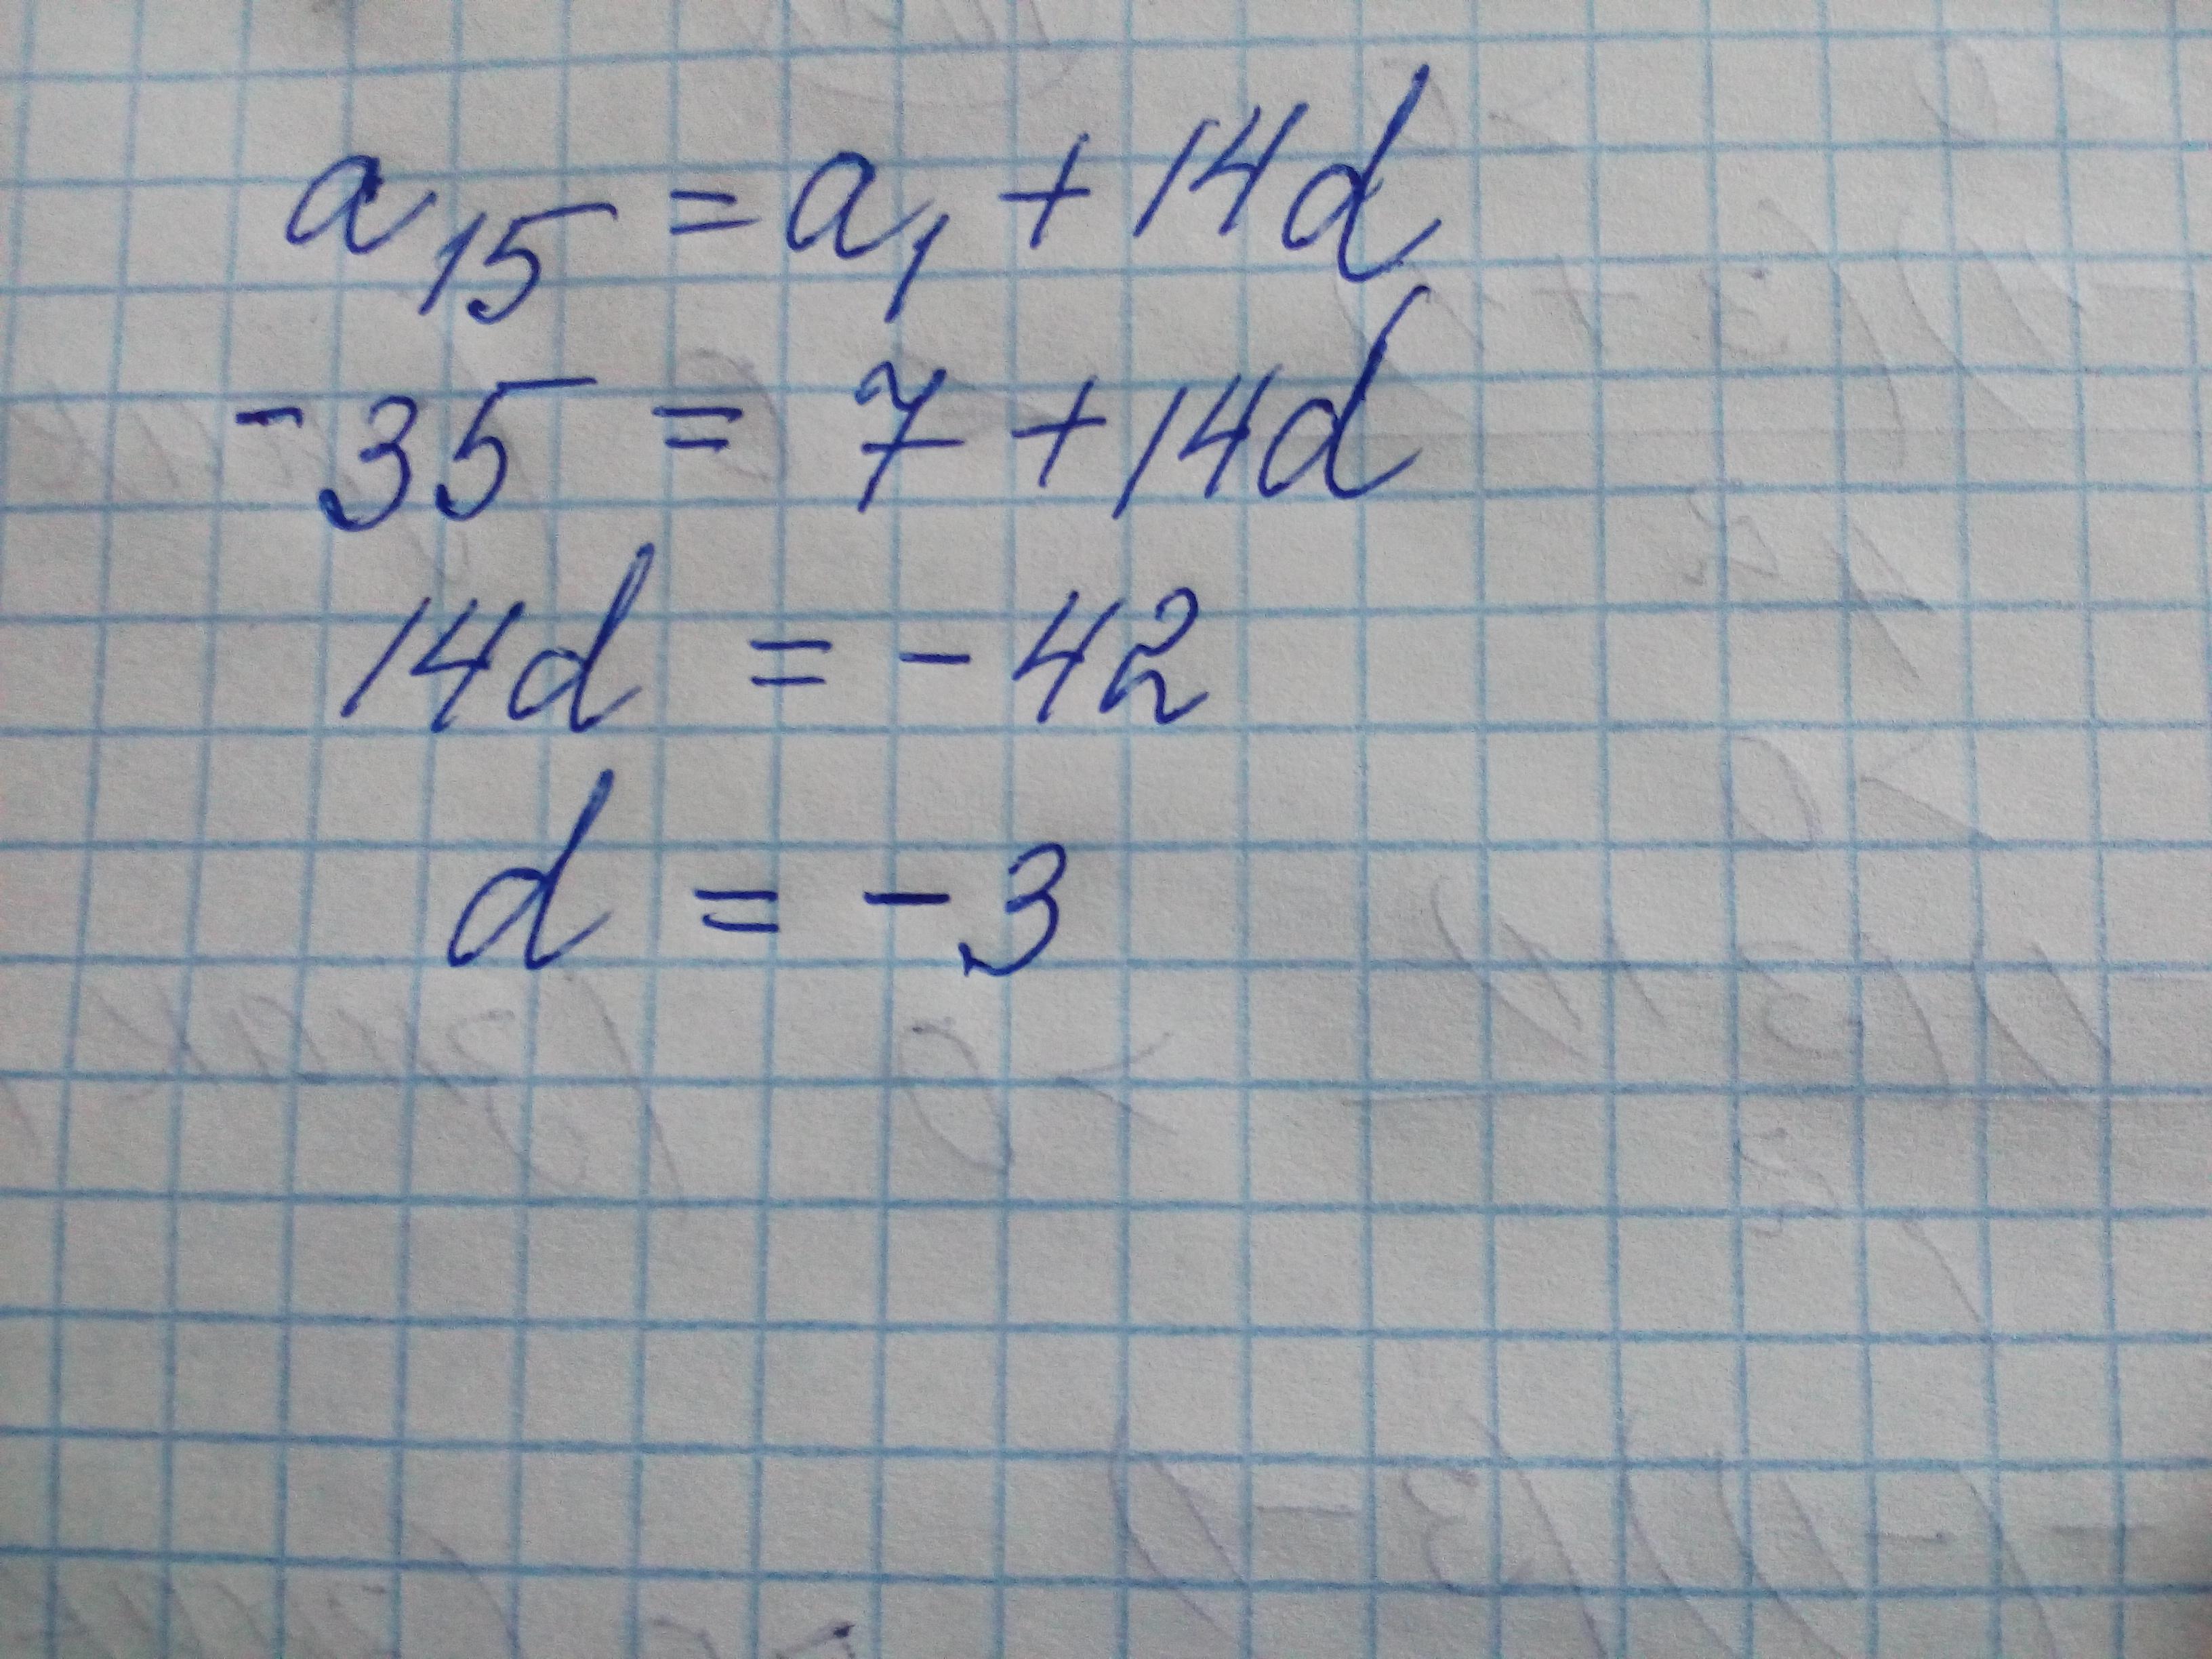 a₁₅ = a₁ + 14d
-35 = 7 + 14d
14d = -42
d = -3